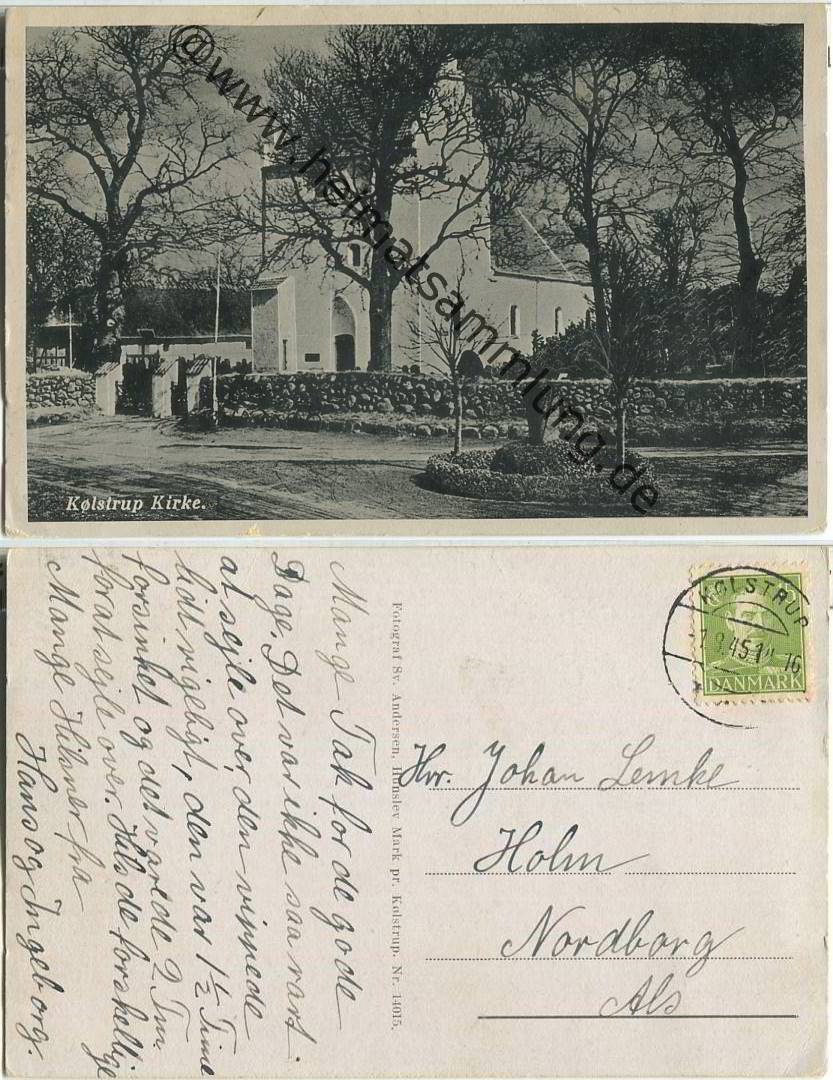 @www.heimatsammlung.de
Kølstrup Kirke.
Mange Tak for de gode
Dage. Det var ikke saa rart
at sejle over, den vippede
lidt rigeligt, den var 1½ Time
forsinket og det varede 2 Tim
forat sejle over. Hils de forskellige
Mange Hilsner fra
Hans og Ingeborg.
Fotograf Sv. Andersen, Hunslev Mark pr. Kølstrup. Nr. 14015.
KØLSTRUP
DANMARK
Hr. Johan Lemke
Holm
Nordborg
Als